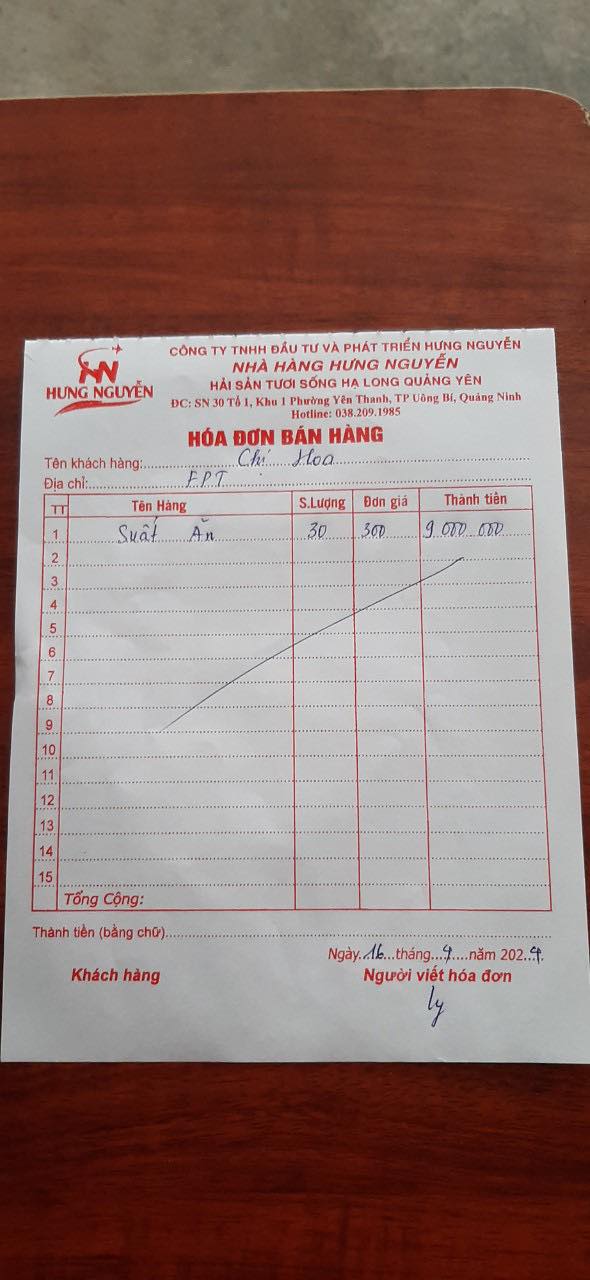 HN
HƯNG NGUYỄN
CÔNG TY TNHH ĐẦU TƯ VÀ PHÁT TRIỂN HƯNG NGUYỄN
NHÀ HÀNG HƯNG NGUYỄN
HẢI SẢN TƯƠI SỐNG HẠ LONG QUẢNG YÊN
ĐC: SN 30 Tổ 1, Khu 1 Phường Yên Thanh, TP Uông Bí, Quảng Ninh
Hotline: 038.209.1985
HÓA ĐƠN BÁN HÀNG
Tên khách hàng: Chị Hoa
Địa chỉ: FPT
TT Tên Hàng S.Lượng Đơn giá Thành tiền
1 Suất Ăn 30 300 9 000 000
2
3
4
5
6
7
8
9
10
11
12
13
14
15
Tổng Cộng:
Thành tiền (bằng chữ)
Ngày 16 tháng 9 năm 2024
Khách hàng Người viết hóa đơn
ly